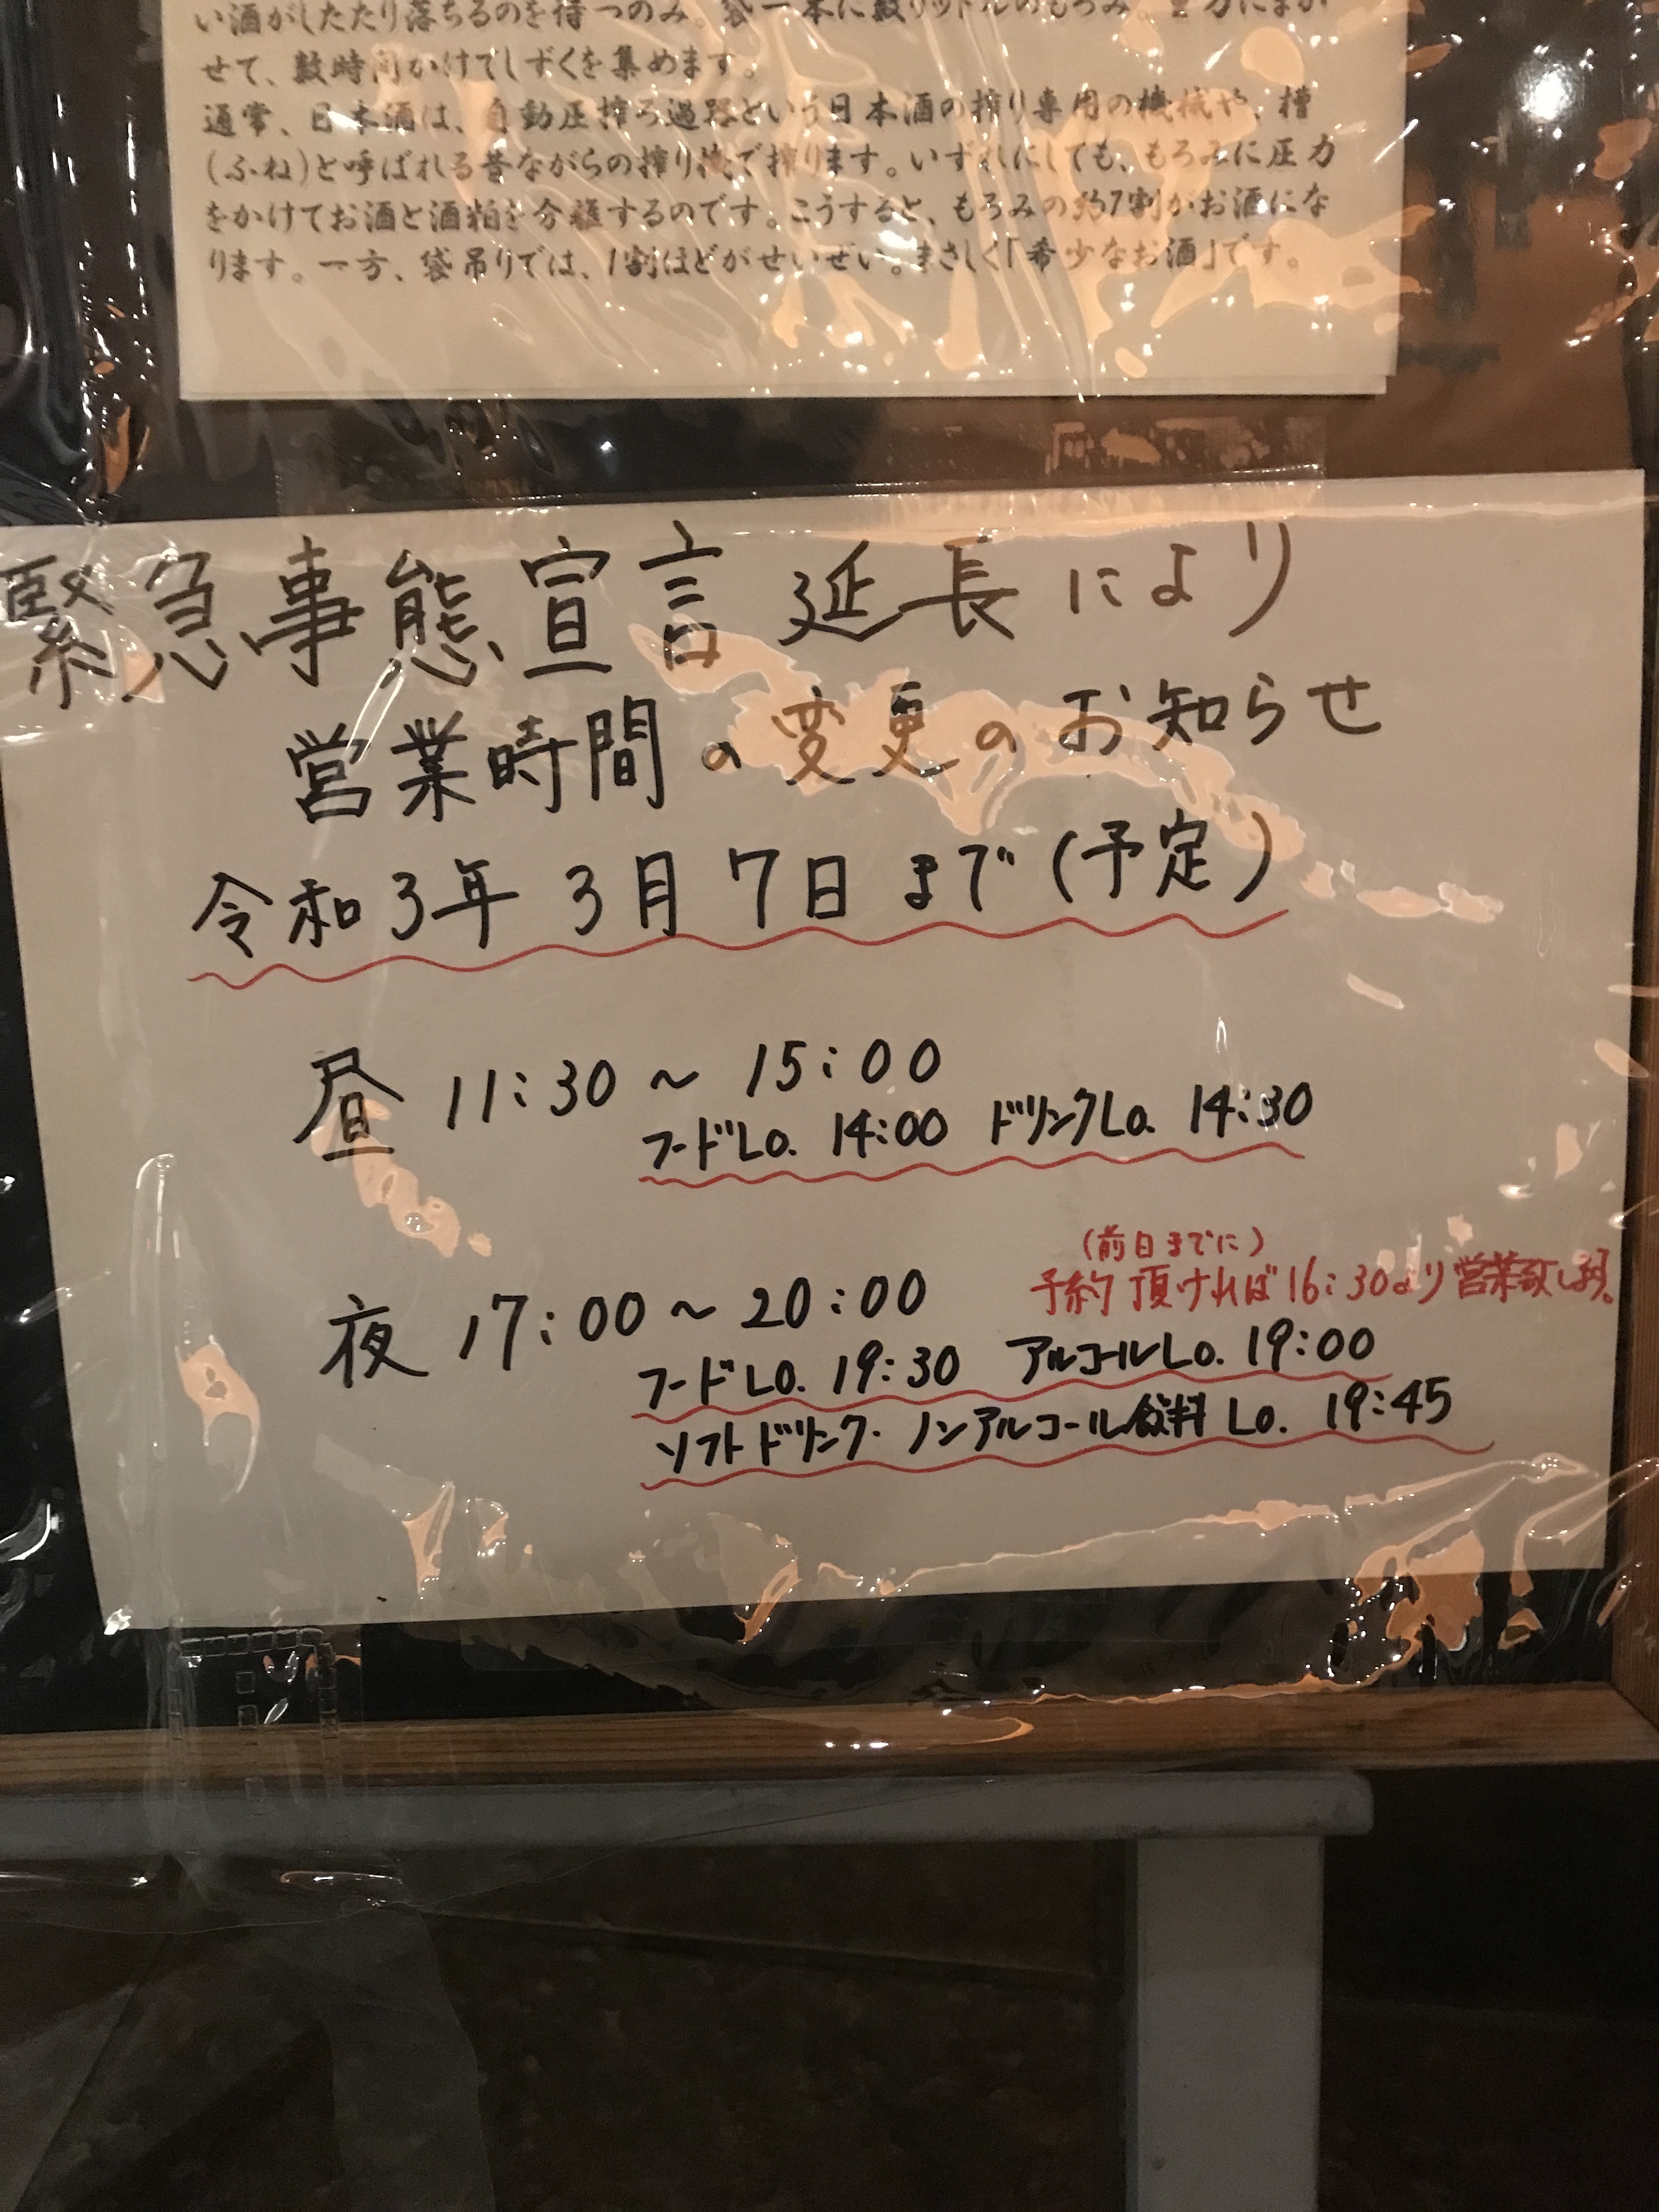 い酒がしたたり落ちるのを待つのみ。袋一本に数リットルのもろみ。重力にまか
せて、数時間かけてしずくを集めます。
通常、日本酒は、自動圧搾ろ過器という日本酒の搾り専用の機械や、槽
(ふね)と呼ばれる昔ながらの搾り機で搾ります。いずれにしても、もろみに圧力
をかけてお酒と酒粕を分離するのです。こうすると、もろみの約7割がお酒にな
ります。一方、袋吊りでは、1割ほどがせいぜい。まさしく「希少なお酒」です。
緊急事態宣言延長により
営業時間の変更のお知らせ
令和3年3月7日まで(予定)
昼 11:30～15:00
フードLo. 14:00 ドリンクLo. 14:30
(前日までに)
予約頂ければ16:30より営業致します。
夜 17:00～20:00
フードLo. 19:30 アルコールLo. 19:00
ソフトドリンク・ノンアルコール飲料Lo. 19:45